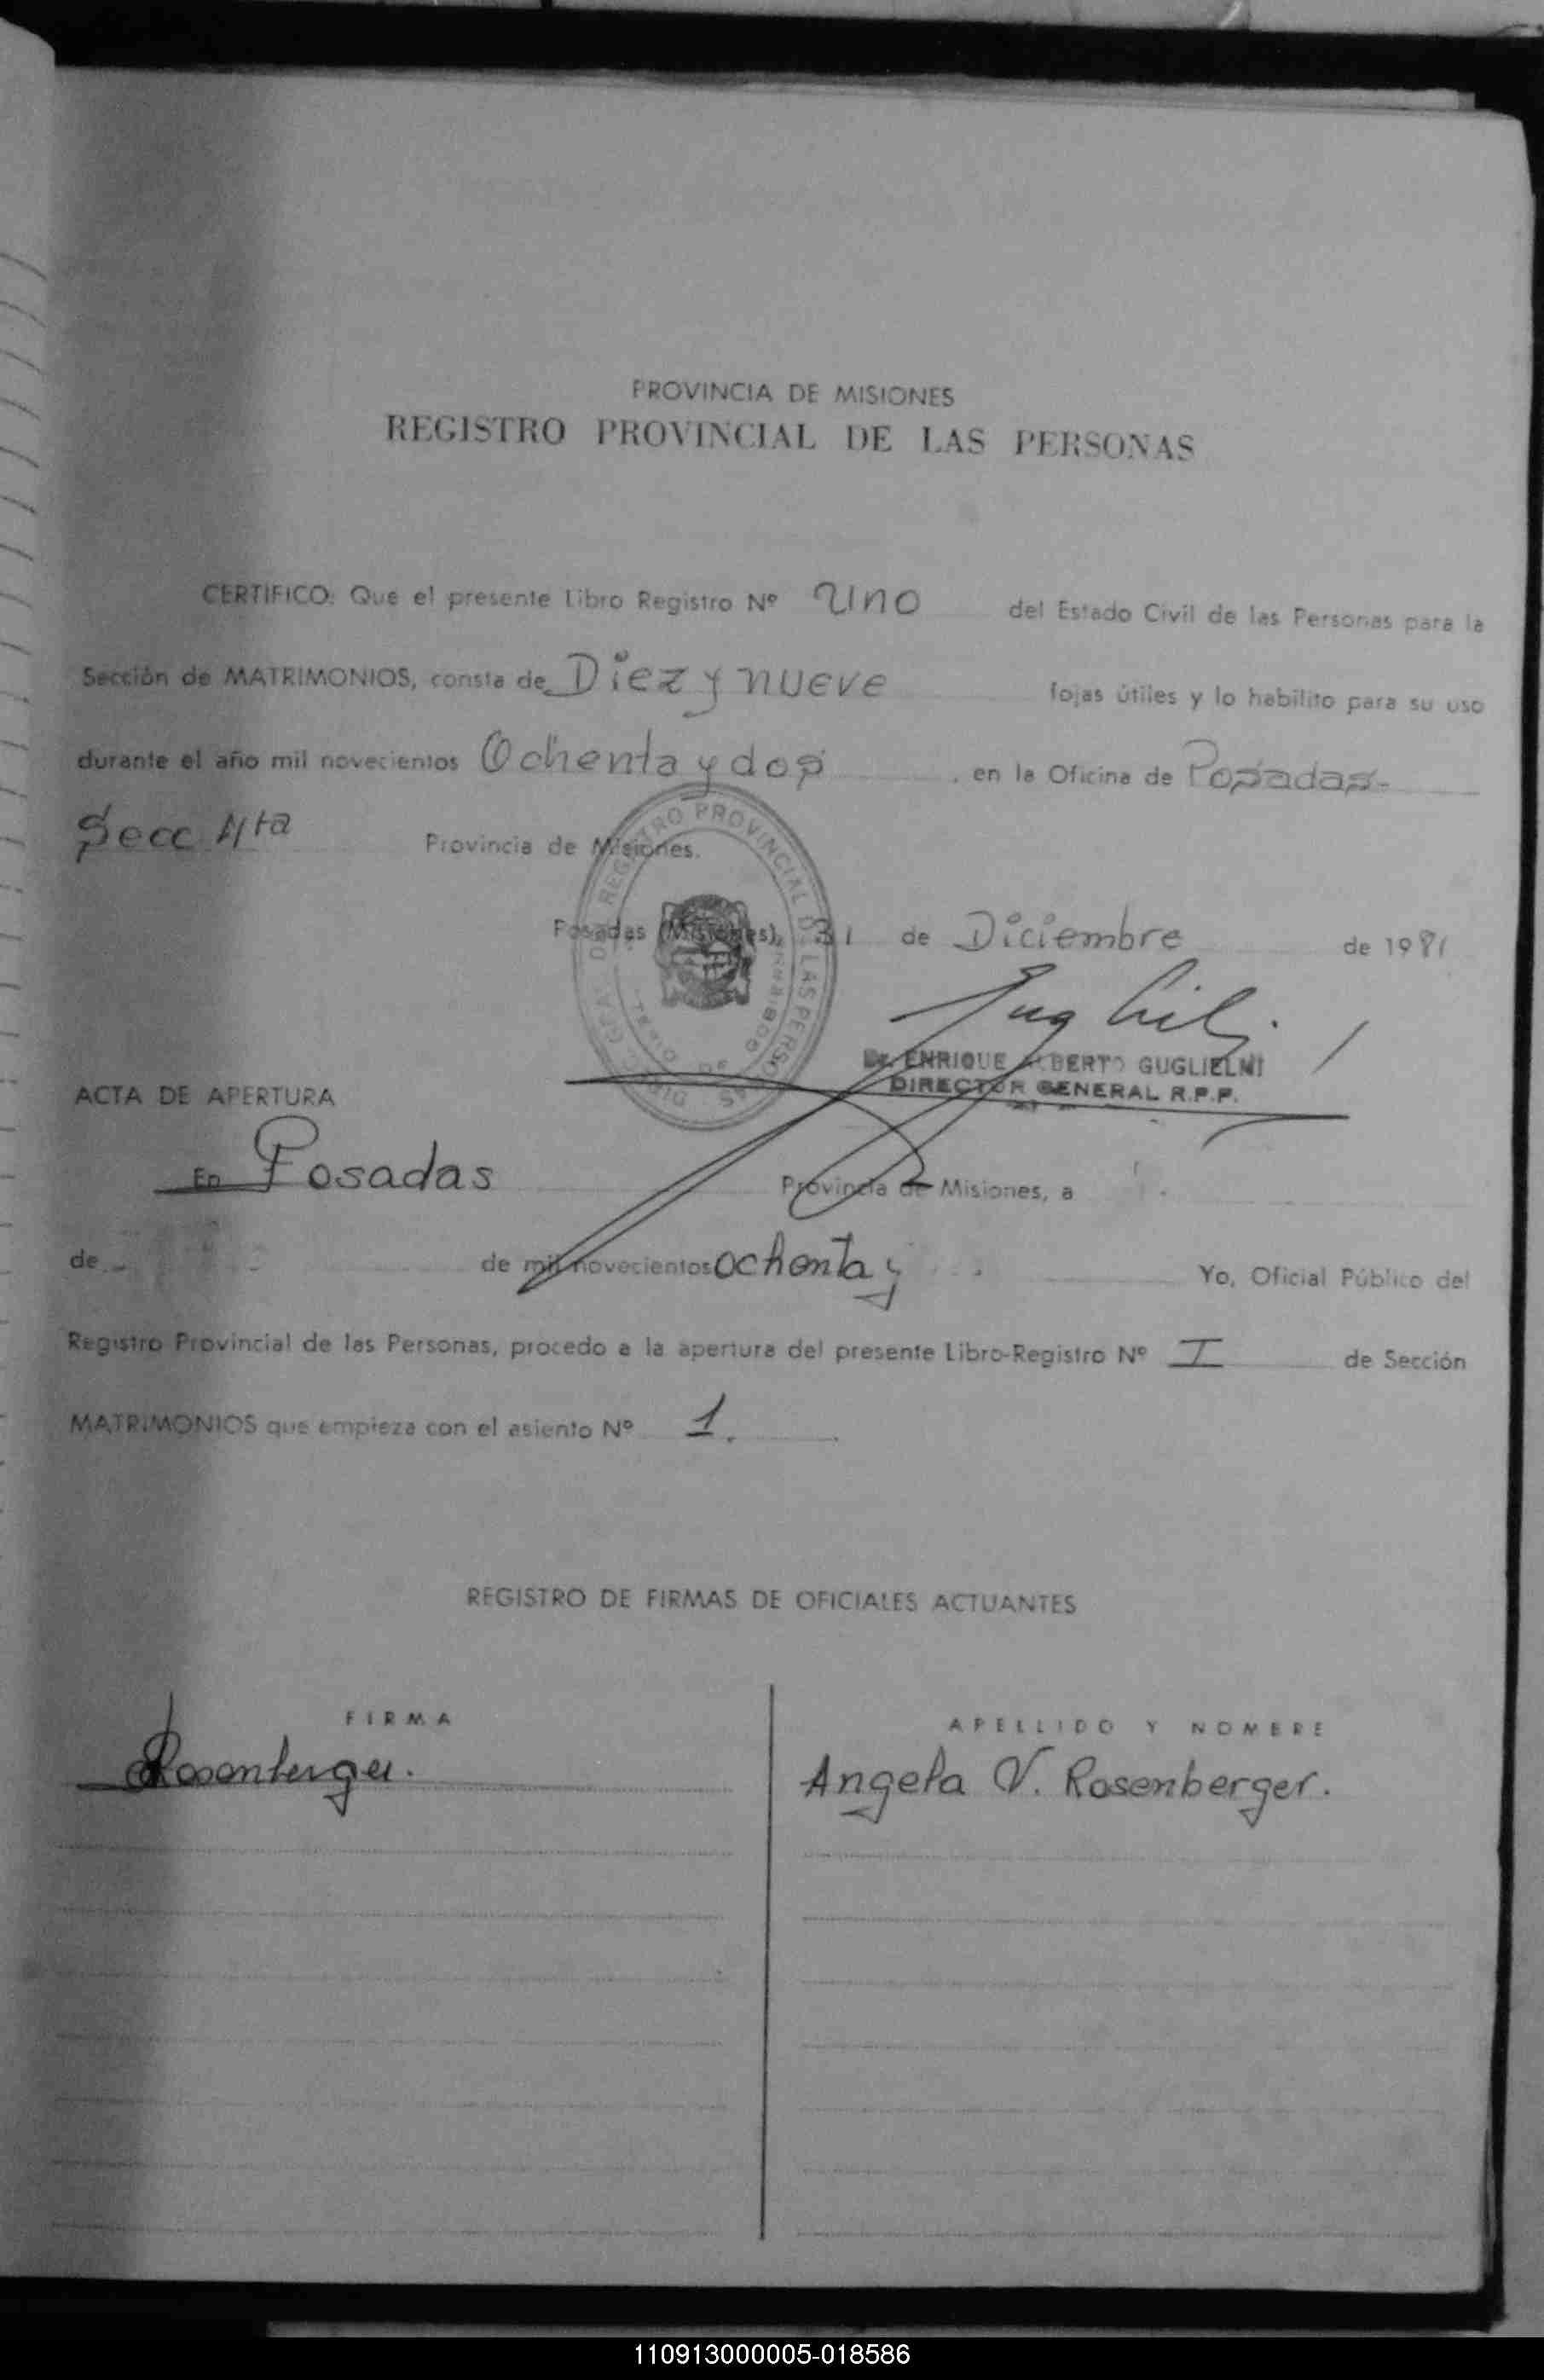 PROVINCIA DE MISIONES
REGISTRO PROVINCIAL DE LAS PERSONAS
CERTIFICO: Que el presente Libro Registro Nº Uno del Estado Civil de las Personas para la
Sección de MATRIMONIOS, consta de Diez y nueve fojas útiles y lo habilito para su uso
durante el año mil novecientos Ochenta y dos, en la Oficina de Posadas-
Secc 4ta Provincia de Misiones.
Posadas (Misiones), 31 de Diciembre de 1981
Dr. ENRIQUE ALBERTO GUGLIELMI
DIRECTOR GENERAL R.P.P.
ACTA DE APERTURA
En Posadas Provincia de Misiones, a
de de mil novecientos ochenta y Yo, Oficial Público del
Registro Provincial de las Personas, procedo a la apertura del presente Libro-Registro Nº I de Sección
MATRIMONIOS que empieza con el asiento Nº 1.
REGISTRO DE FIRMAS DE OFICIALES ACTUANTES
FIRMA APELLIDO Y NOMBRE
Rosenberger. Angela V. Rosenberger.
110913000005-018586